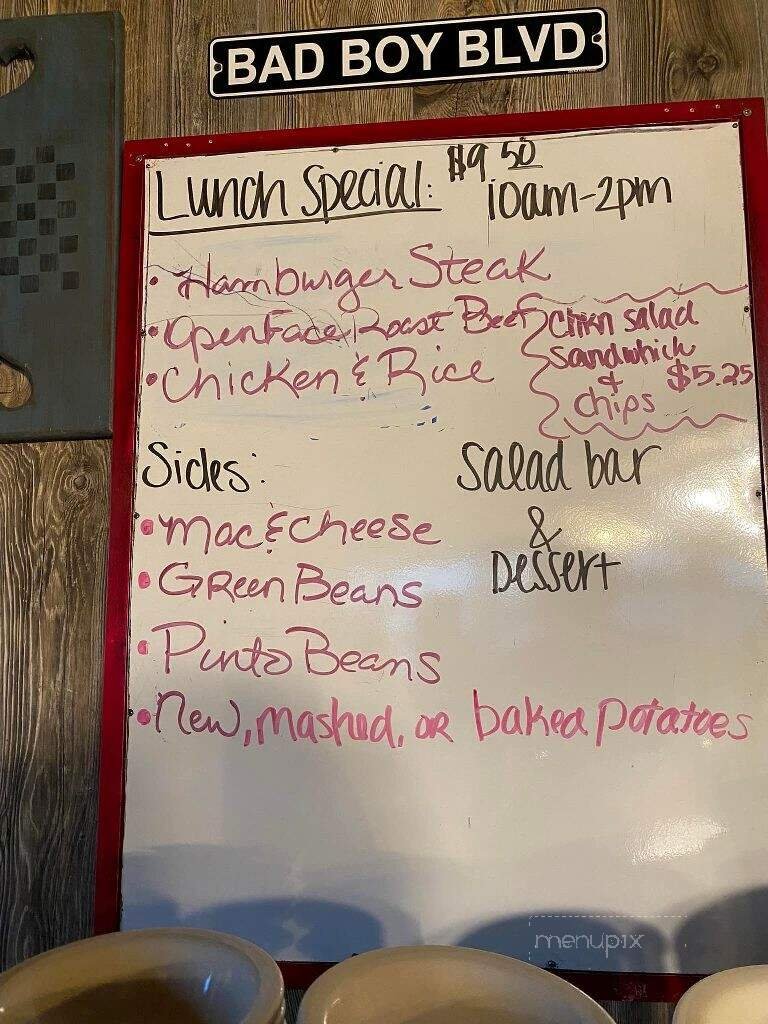 BAD BOY BLVD
Lunch Special: $9.50
10am-2pm
• Hamburger Steak
• Open Face Roast Beef
• Chicken & Rice
Chikn salad
sandwhich
& $5.25
chips
Sides:
• Mac & Cheese
• Green Beans
• Pinto Beans
• New, mashed, or baked potatoes
Salad bar
&
Dessert
menupix